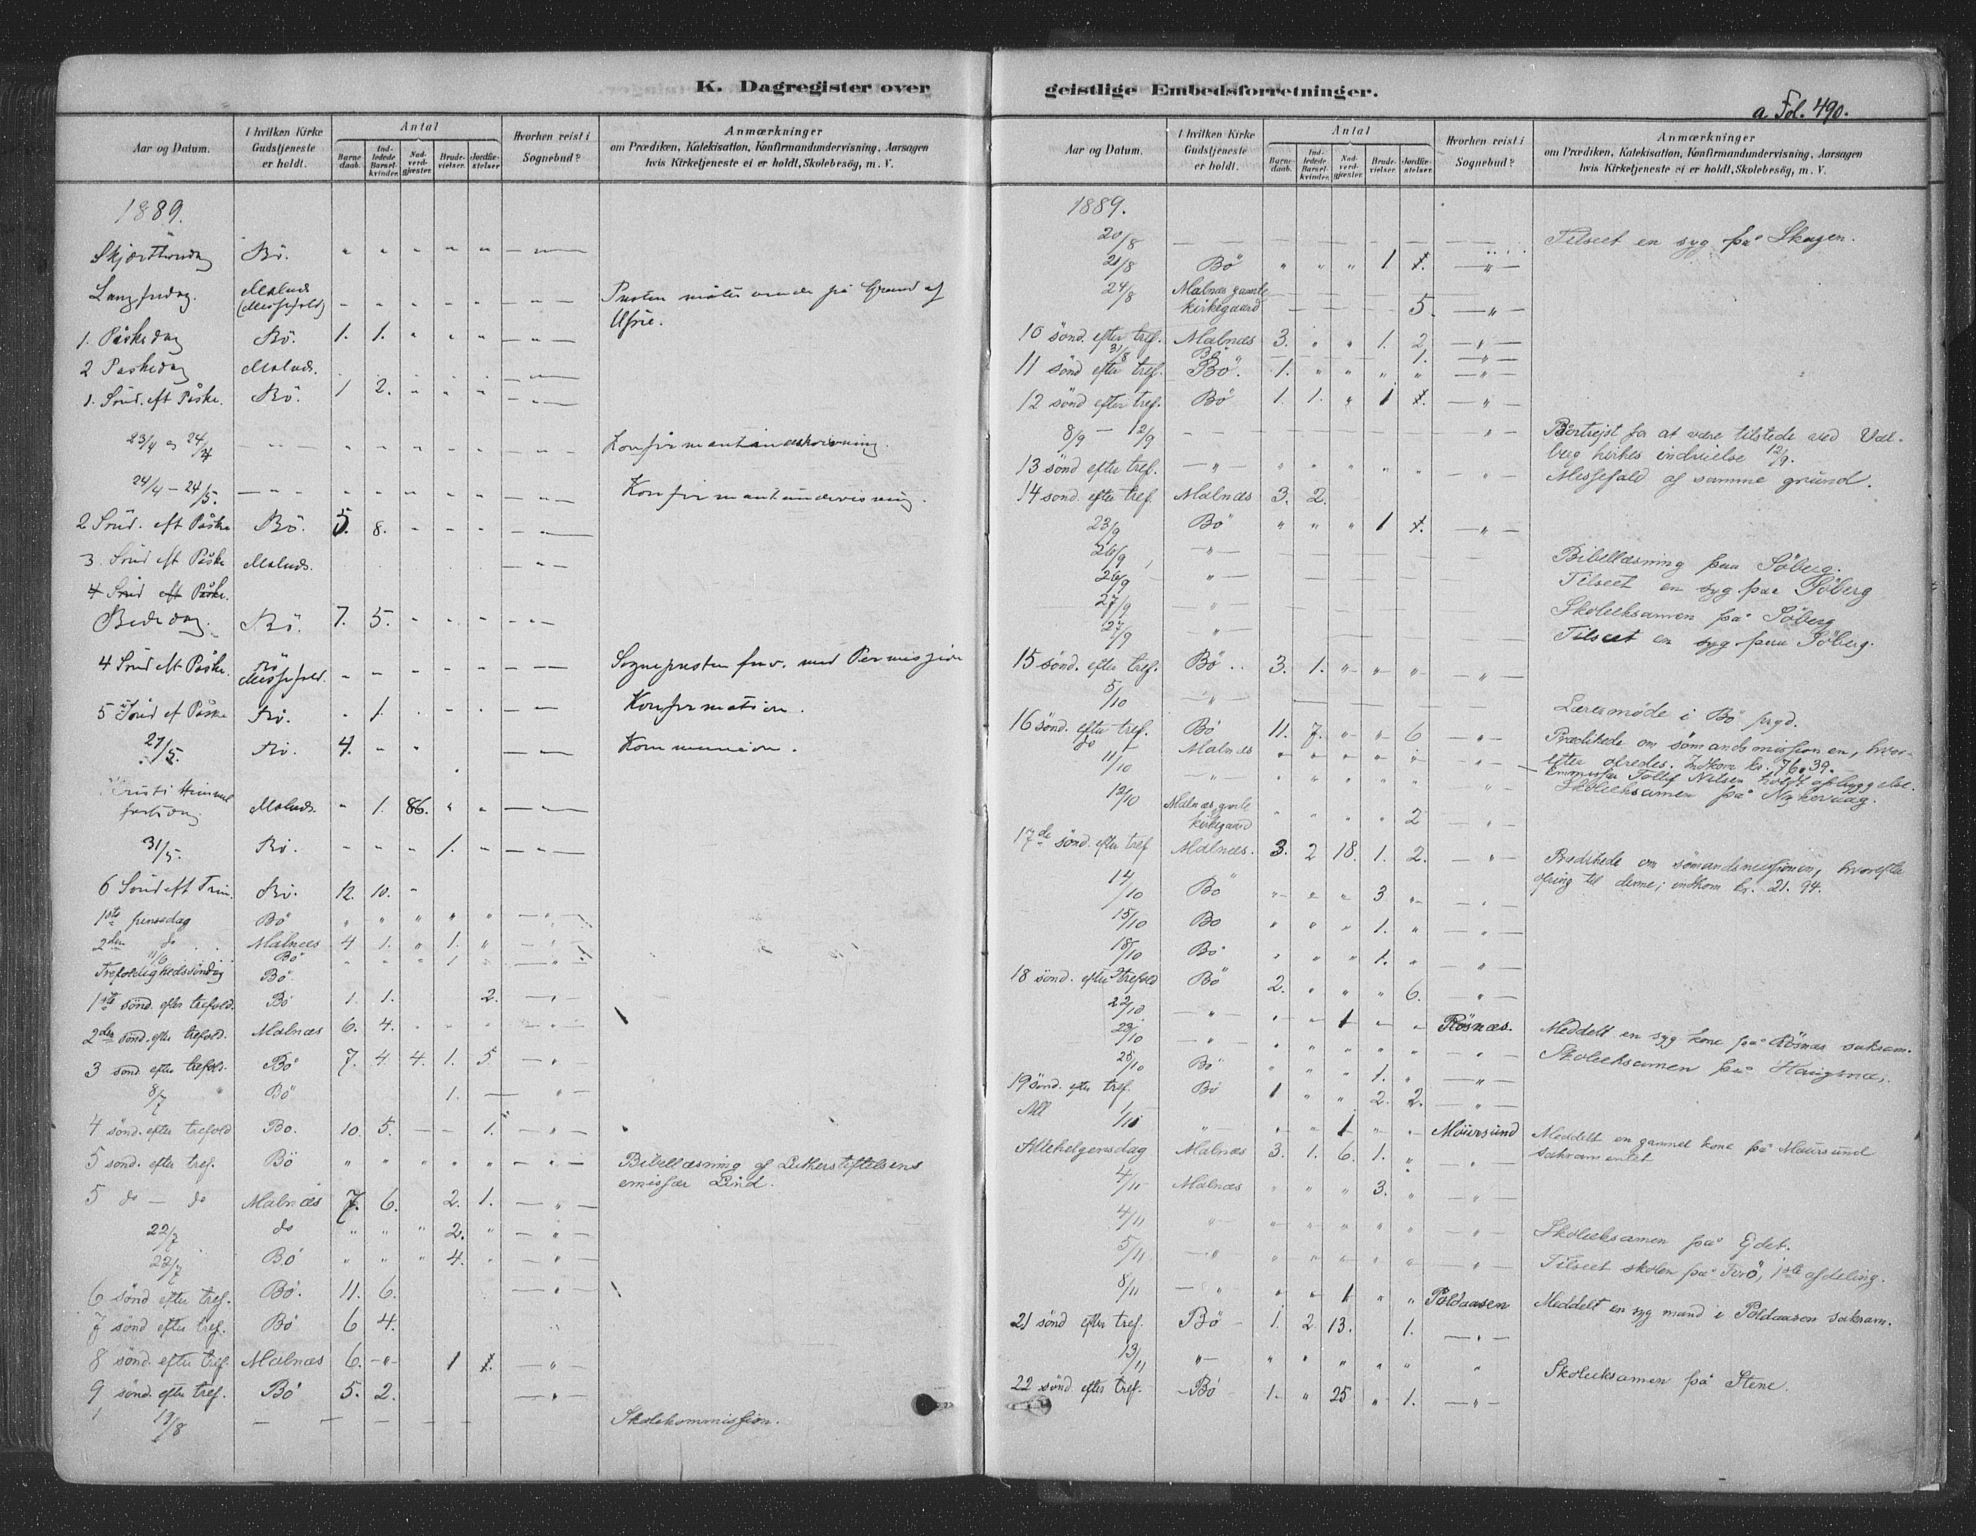 K. Dagregister over
Aar og Datum.
I hvilken Kirke Gudstjeneste er holdt.
Antal
Barnedaab.
Indledede Barselkvinder.
Nadverdgjæster.
Brudevielser.
Jordfæstelser.
Hvorhen reist i Sognebud?
Anmærkninger
om Prædiken, Katekisation, Konfirmandundervisning, Aarsagen
hvis Kirketjeneste ei er holdt, Skolebesög, m. V.
1889.
Skjærthorsdag Bö. " " " " "
Langfredag. Malnes (Messefald) " " " " " Presten
1. Påskedag Bö. 1. 1. " " "
2 Paskedag Malnes.
1. Sönd. eft Påske. Bö. 1 2. " " "
23/4 og 24/4
24/4 – 24/5. Konfirmantundervisning.
2 Sönd. eft Påske Bö. 5. 8. " " "
3. Sönd eft Påske Malnes.
4 Sönd eft Påske.
Bededag. Bö. 7. 5. " " "
4 Sönd eft Påske. Bö Messefald. Sognepresten med Permission
5 Sönd ef Påske Bö. " 1. " " " Konfirmation.
27/5. Bö. 4. " " Kommunion.
Kristi Himmelfartsdag. Malnes " 1. 86. " "
31/5. Bö. " " " 1. "
6 Sönd eft Bö. 12. 10. "
1ste pinsedag Bö " " " " "
2den do Malnæs 4 1. " 1. "
11/6 Bö " " " 1 "
Trefoldighedssöndag Bö
1ste sönd. efter trefold. Bö 1. 1. 2.
2den sönd. efter trefold. Malnæs 6. 4.
3 sönd efter trefold. Bö 7. 4. 4. 1. 5
8/7 Bö 1.
4 sönd. efter trefold Bö. 10. 5. 1.
5 sönd. efter tref. Bö " " " " " Bibellæsning af Lutherstiftelsens
emissær Lind.
5 do – do Malnæs 7. 6. 2. 1.
22/7 do " " " 2.
22/7 Bö " " " 4.
6 sönd efter tref. Bö. 11. 6.
7 sönd efter tref. Bö 6 4.
8 sönd. efter tref. Malnæs 6. 1 1.
9 sönd. efter tref. Bö 5. 2.
19/8 Skolekommission.
geistlige Embedsforretninger.
a Fol. 490.
Aar og Datum.
I hvilken Kirke Gudstjeneste er holdt.
Antal
Barnedaab.
Indledede Barselkvinder.
Nadverdgjæster.
Brudevielser.
Jordfæstelser.
Hvorhen reist i Sognebud?
Anmærkninger
om Prædiken, Katekisation, Konfirmandundervisning, Aarsagen
hvis Kirketjeneste ei er holdt, Skolebesög, m. V.
1889.
20/8 Tilseet en syg på Skagen.
21/8 Bö " " " 1 1.
24/8 Malnæs gamle kirkegaard 5.
10 sönd. efter tref. Malnæs 3. " " 1. 2
31/8 Bö 1.
11 sönd efter tref. Bö. 1. " " " "
12 sönd efter tref. Bö 1. 1. " 1 1.
8/9 – 12/9 Bortrejst for at være tilstede ved Val-
berg kirkes indvielse 12/9.
13 sönd efter tref. Messefald af samme grund.
14 sönd. efter tref. Malnæs 3. 2.
23/9 Bö " " " 1 1.
26/9 Bibellæsning paa Söberg.
26/9 Tilseet en syg paa Söberg
27/9 Skoleeksamen på Söberg
27/9 Tilseet en syg paa Söberg.
15 sönd. efter tref. Bö 3. 1. " " "
5/10 Læremöde i Bö
16 sönd. efter tref. Bö 11. 7. " " 6 Prædikede om sömandsmissionen, hvor-
efter ofredes. Indkom kr. 76.39.
do Malnæs Emmissær Tollef Nilsen holdt opbyggelse.
11/10 Skoleeksamen på Nykevaag.
12/10 Malnæs gamle kirkegaard 2
17de sönd. efter tref Malnæs. 3. 2 18. 1. 2. Prædikede om sömandsmissionen, hvorefter
ofring til denne; indkom kr. 21.94.
14/10 Bö 3
15/10 Bö 1.
18/10 Bö 1.
18 sönd. efter trefold Bö 2. " " " 6.
22/10 1 Rösnæs. Meddelt en syg kone på Rösnæs sakram.
23/10 Skoleeksamen på
25/10 Bö 1.
19 sönd. efter tref. Bö 1 " " 2. 2.
All 1/11 1 Møiersund Meddelt en gammel kone på
sakramentet
Allehelgensdag Malnæs 3. 1. 6. 1. "
4/11 Malnæs 3.
4/11 Skoleeksamen på Ejdet.
5/11 Tilseet skolen på 1ste afdeling.
8/11 1 Poldaasen Meddelt en syg mand i Poldaasen sakram.
21 sönd efter tref. Bö 1. 2 13. 1.
13/11 Skoleeksamen på Stene.
22 sönd efter tref. Bö 1. " 25 " 1.